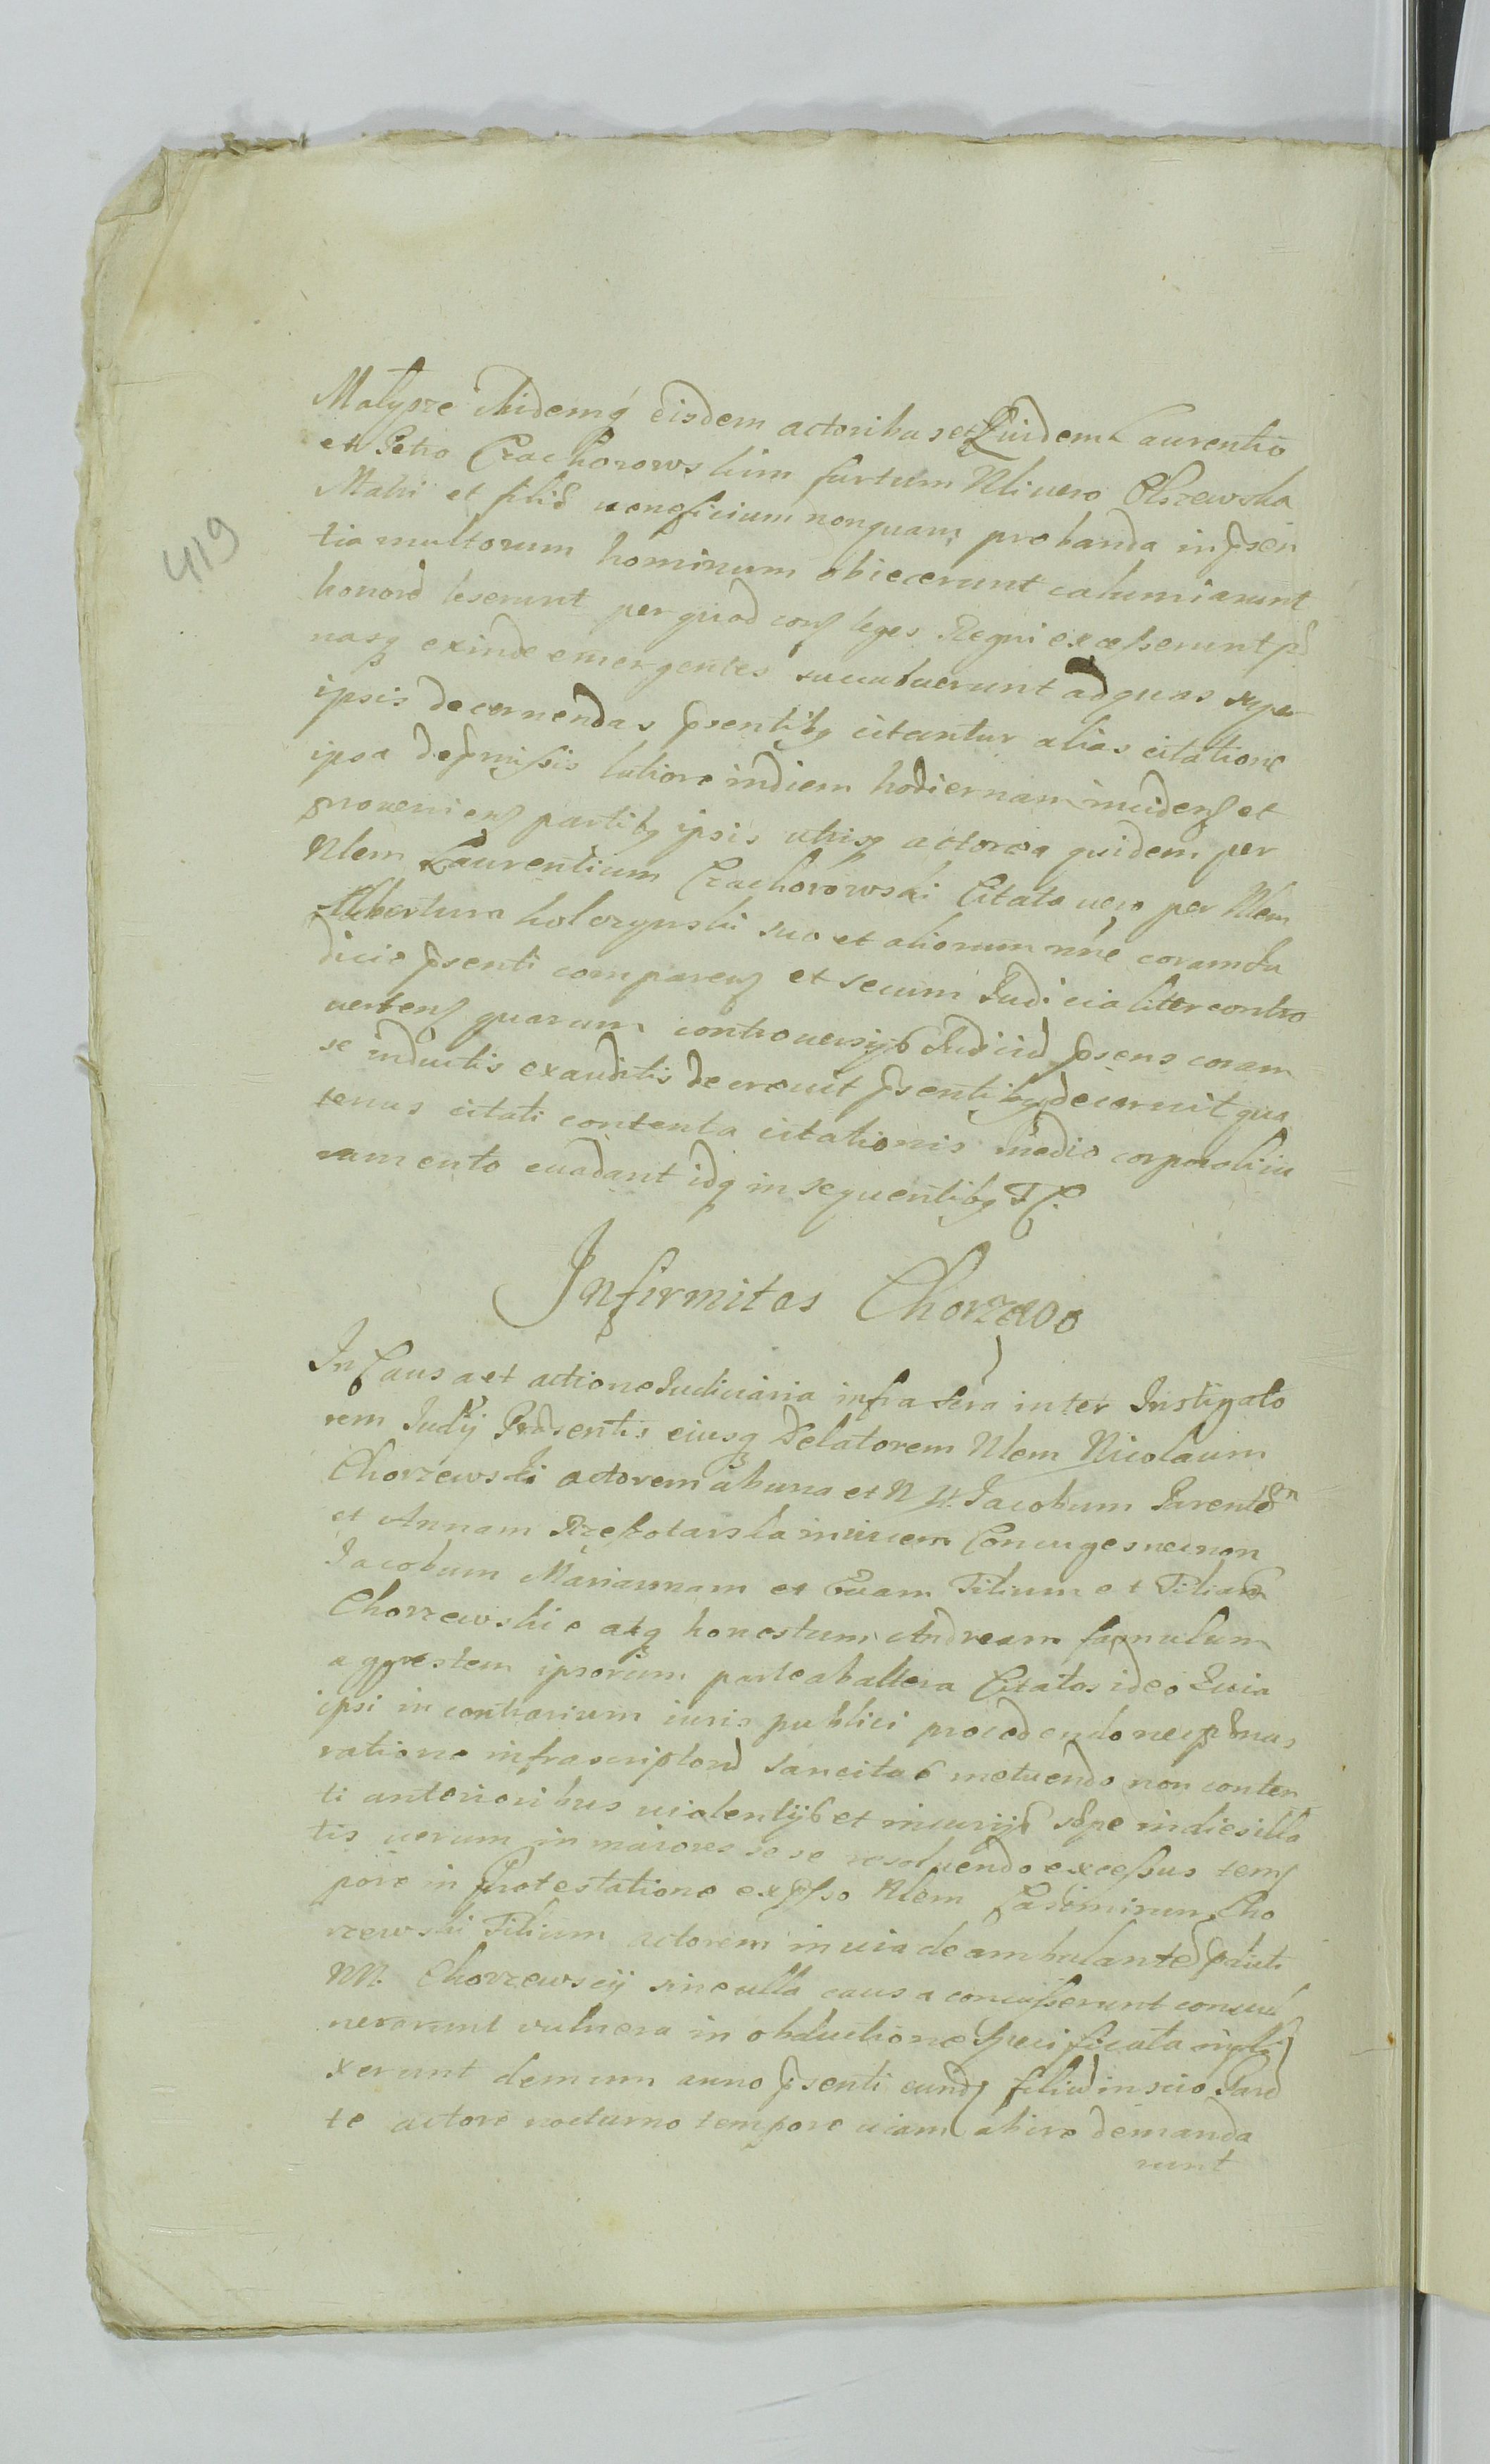 419
Matysze ibidemq́ eisdem actoribus et Quidem Laurentio
et Petro Czachorowskim furtum Nli vero Olszewska
Matri et filiæ ueneficium nonquam probanda in psen
tia multorum hominum obiecerunt calumniarunt
honorē leserunt per quod cons leges Regni excesserunt pæ
nasq exinde emergentes succubuerunt ad quas super
ipsis decernendas psentibq citantur alias citatione
ipsa depmissis latiore in diem hodiernam incidens et
proveniens partibq ipsis utrisq actorea quidem per
Nlem Laurentium Czachorowski Citata uero per Nlem
Albertum holozynski suo et aliorum nñe coram Ju
dicio psenti comparens et secum Judicialiter contro
uertens quarum controuersijs Judiciū psens coram
se inductis exauditis decreuit psentibq decernit qua
tenus citati contenta citationis medio corporaliiu
ramento euadant idq in sequentibq T C.
Infirmitas Chorzewo
In Causa et actione Judiciaria infra scra inter Instigato
rem Judij Præsentis eiusq Delatorem Nlem Nicolaum
Chorzewski actorem ab una et N N. Jacobum Parentem
et Annam inuicem Coniuges necnon
Jacobum Mariannam et Euam Filium et Filias
Chorzewskie atq honestum Andream famulum
aggrestem ipsorum parte ab altera Citatos ideo Quia
ipsi in contrarium iuris publici procedendo necp pænas
ratione infrascriptorū sancitas metuendo non conten
ti anterioribus uiolentijs et iniurijs sæpe in dies illa
tis uerum in maiores sese resoluendo excessus tem
pore in Protestatione expsso Nlem Casimirum Cho
rzewski Filium actorem in uia deambulantē prædicti
NN. Chorzewscij sine ulla causa concusserunt conuul
nerarunt vulnera in obductione Specificata infli
xerunt demum anno psenti eundē filiū inscio Paren
te actore nocturno tempore uiam abire demanda
runt